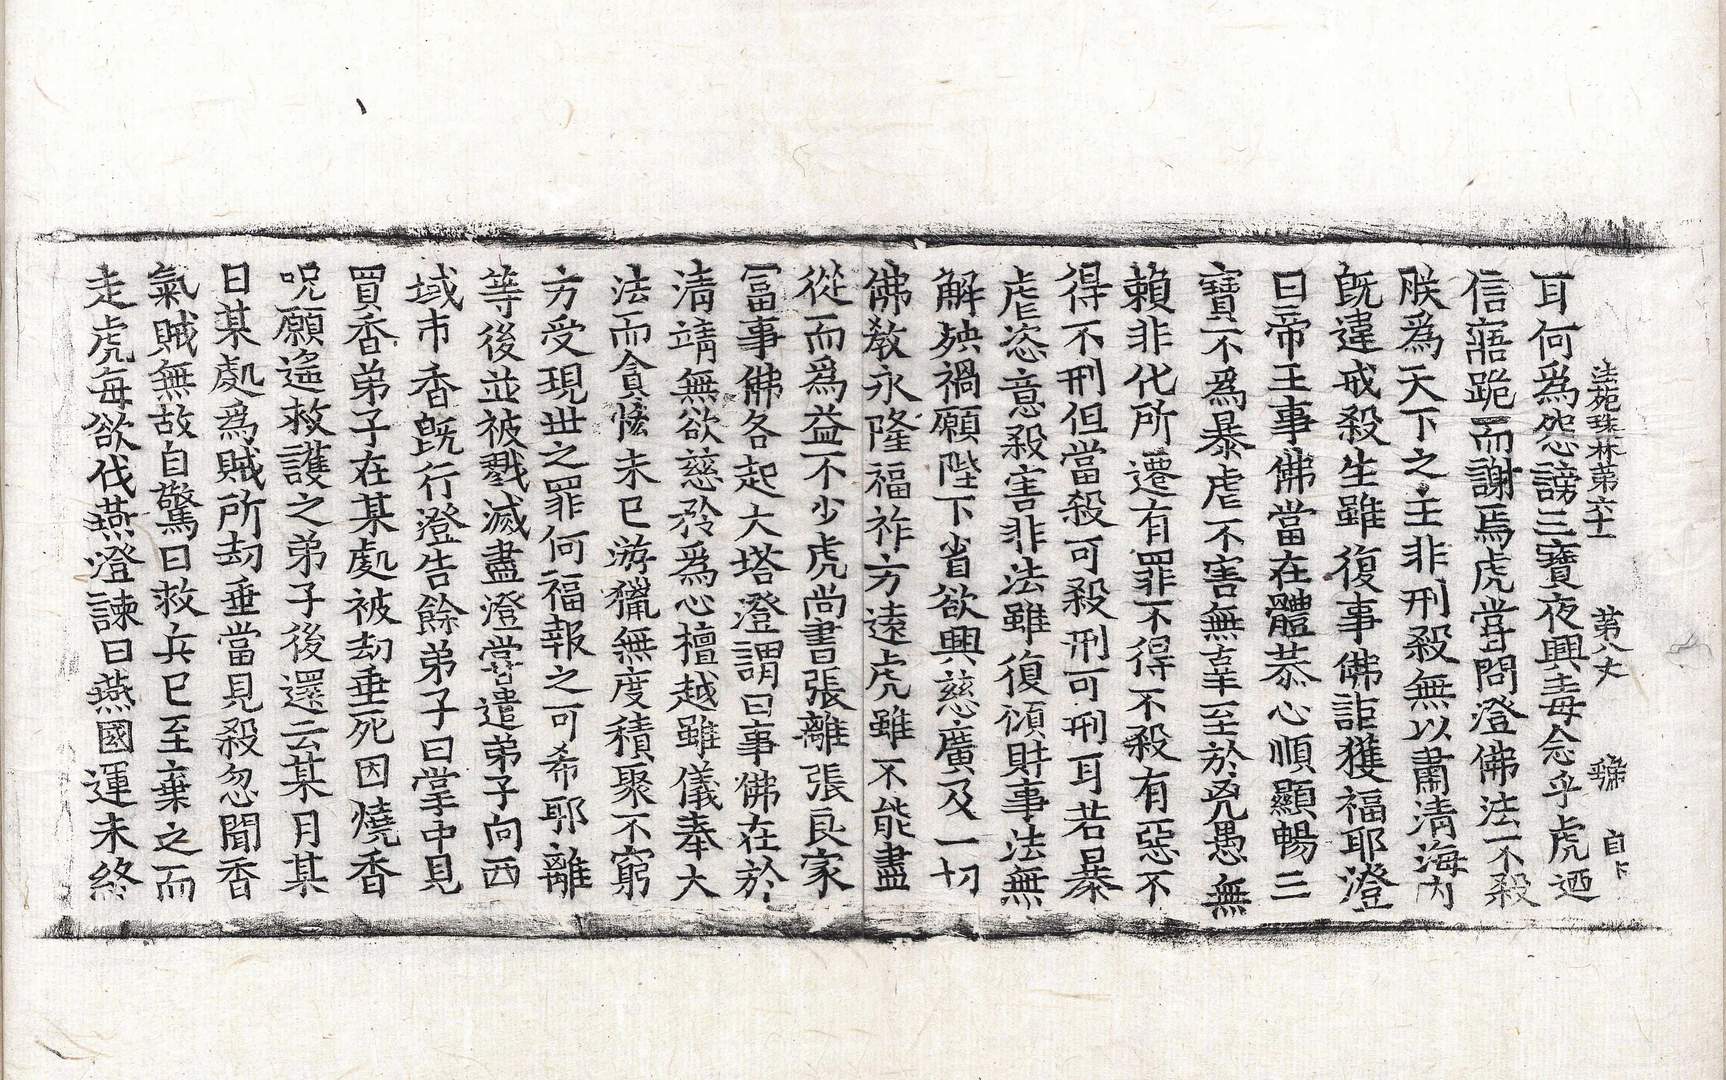 法苑珠林第六十一 第八丈 自下
耳何爲怨謗三寶夜興毒念乎虎迺
信寤跪而謝焉虎甞問澄佛法不殺
朕爲天下之主非刑殺無以肅清海內
旣違戒殺生雖復事佛詎獲福耶澄
曰帝王事佛當在體恭心順顯暢三
寶不爲暴虐不害無辜至於兇愚無
賴非化所遷有罪不得不殺有惡不
得不刑但當殺可殺刑可刑耳若暴
虐恣意殺害非法雖復傾財事法無
解殃禍願陛下省欲興慈廣及一切
佛敎永隆福祚方遠虎雖不能盡
從而爲益不少虎尚書張離張良家
冨事佛各起大塔澄謂曰事佛在於
淸靖無欲慈矜爲心檀越雖儀奉大
法而貪悋未已游獵無度積聚不窮
方受現世之罪何福報之可希耶離
等後並被戮滅盡澄甞遣弟子向西
域市香旣行澄告餘弟子曰掌中見
買香弟子在某處被劫垂死因燒香
呪願遙救護之弟子後還云某月某
日某處爲賊所劫垂當見殺忽聞香
氣賊無故自驚曰救兵已至棄之而
走虎每欲伐燕澄諫曰燕國運未終